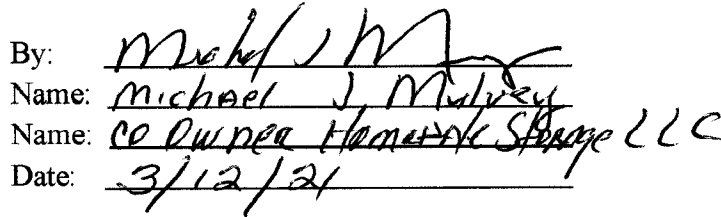 By: Michael J M
Name: Michael J Mulvey
Name: CO Owner Storage LLC
Date: 3/12/21